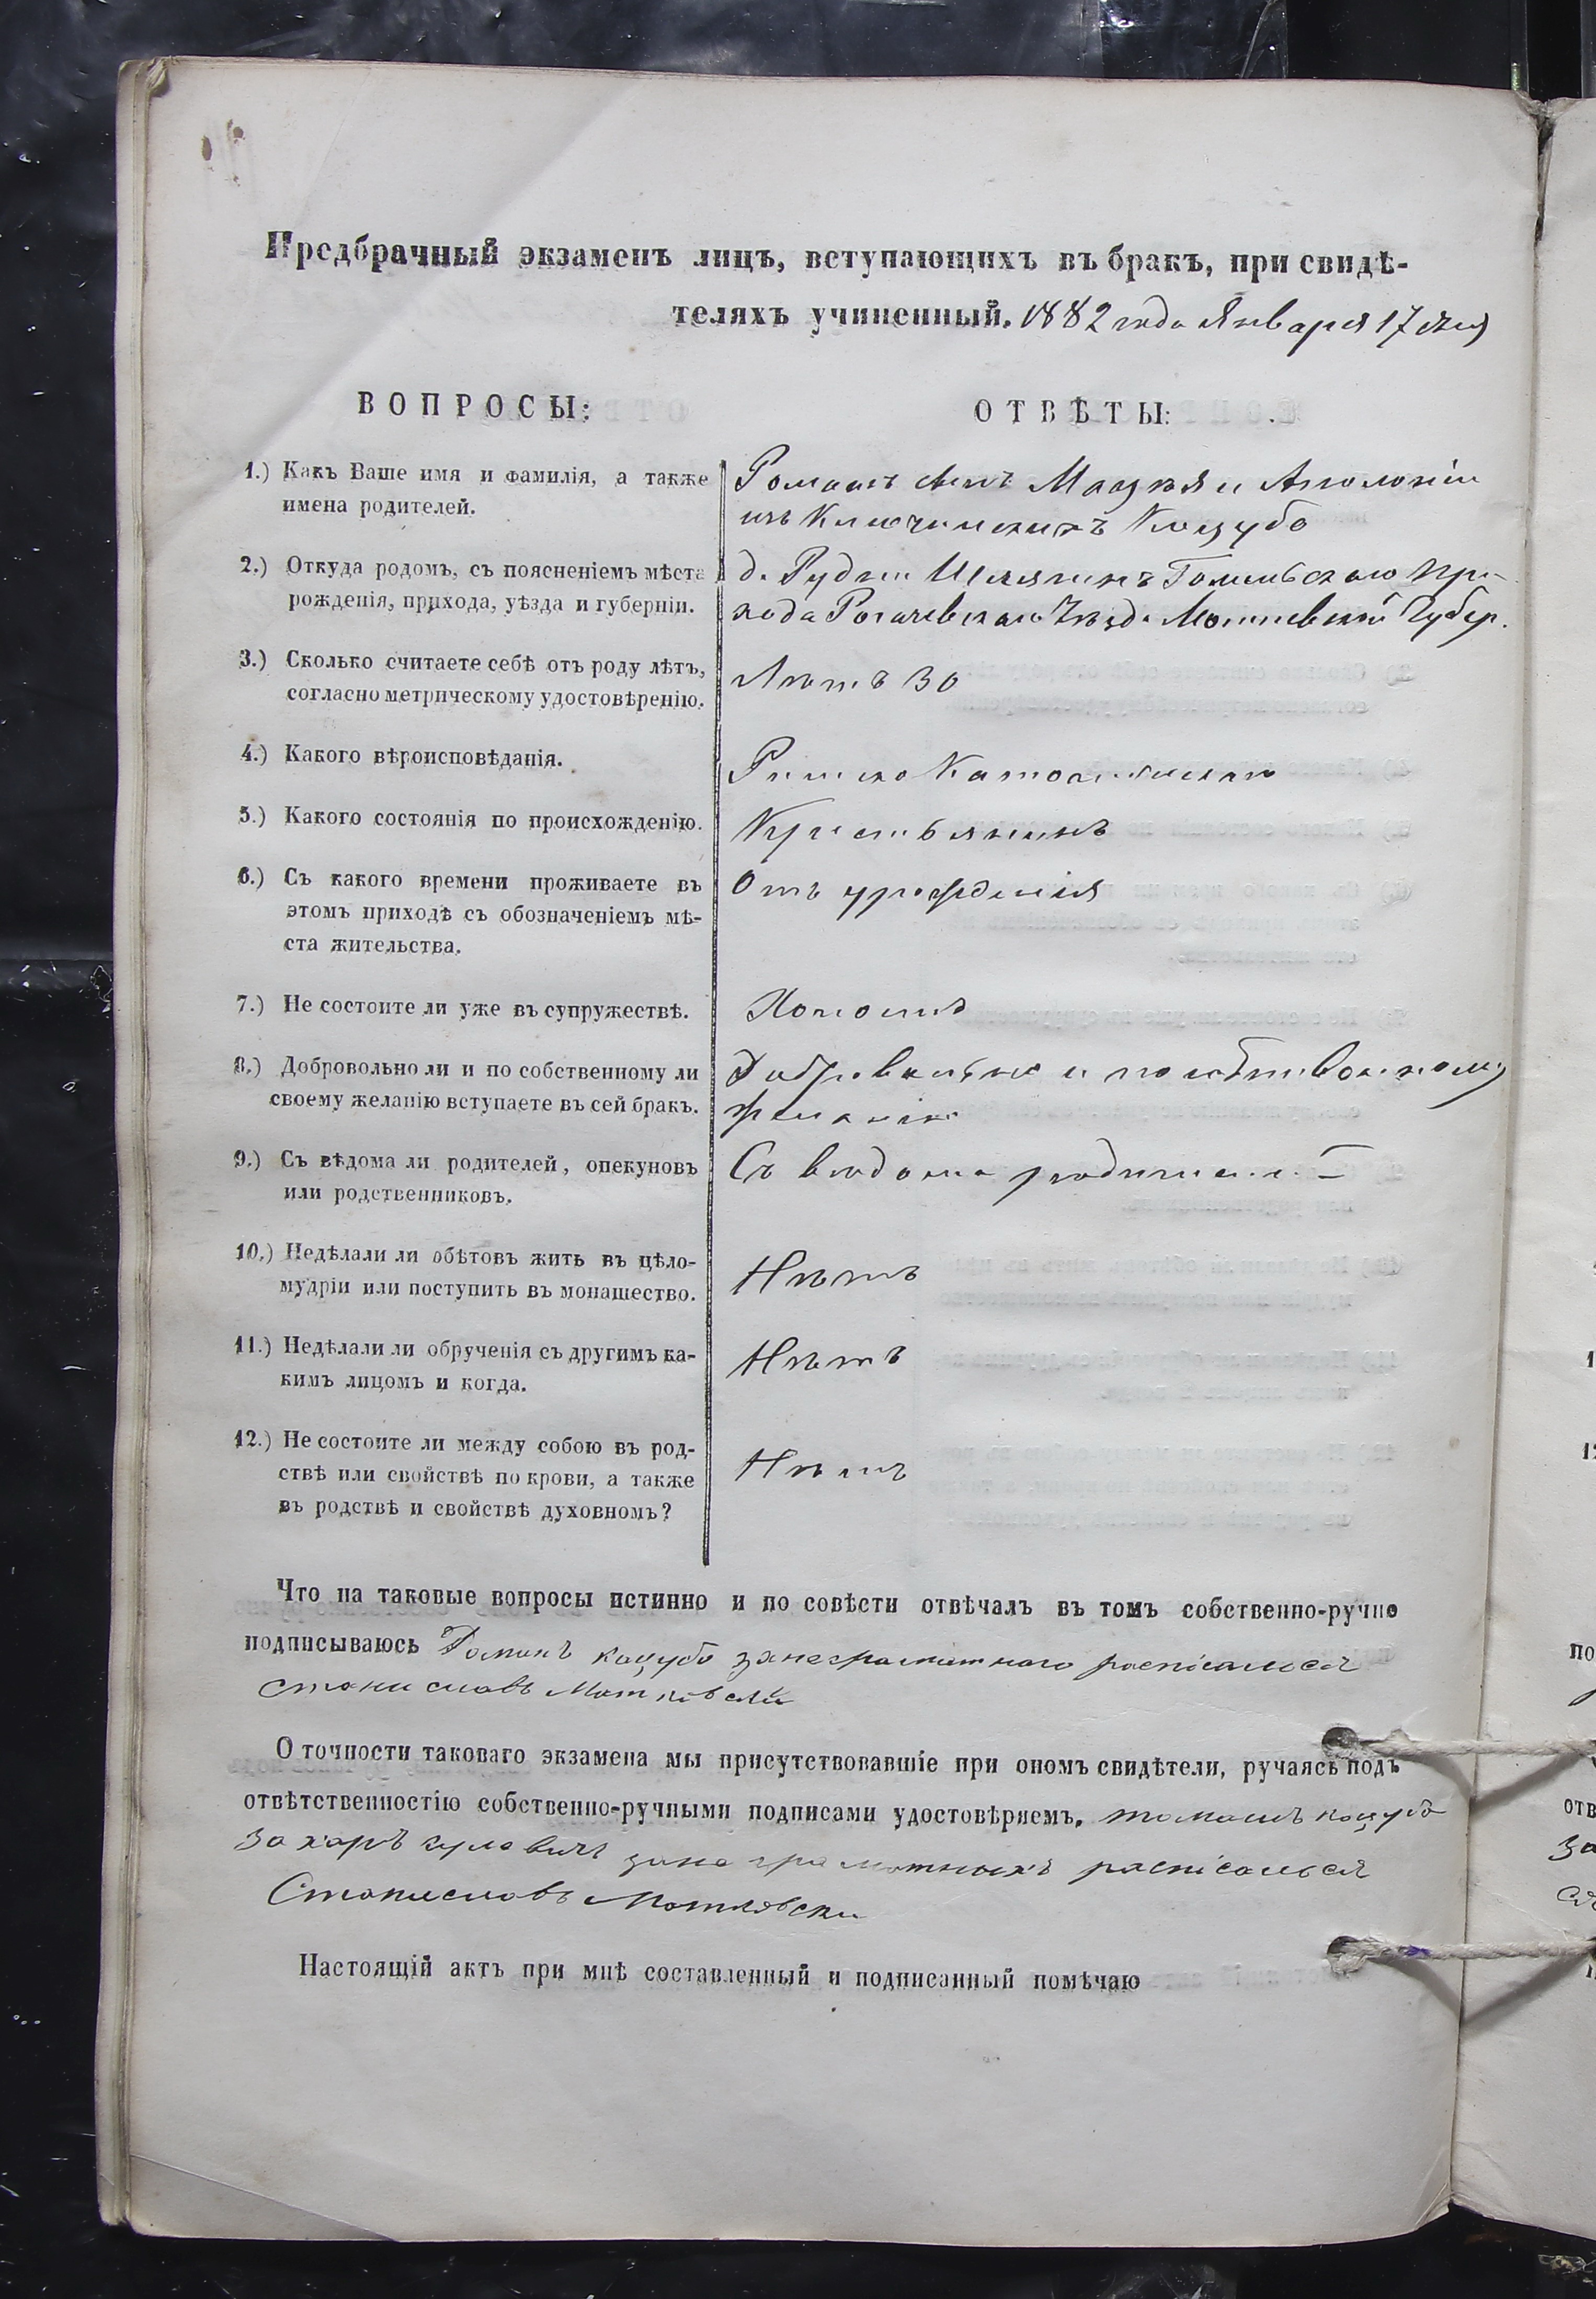 Предбрачный экзаменъ лицъ, вступающихъ въ бракъ, при свидѣ-
теляхъ учиненный. 1882 года Января 17 дня
ВОПРОСЫ:
ОТВѢТЫ:
1.) Какъ Ваше имя и фамилія, а также
имена родителей.
Романъ сынъ Мацѣя и Аполоніи
изъ Ключинскихъ Коцубо
2.) Откуда родомъ, съ поясненіемъ мѣста
рожденія, прихода, уѣзда и губерніи.
д. Рудни Гомельскаго При-
хода Рогачевскаго Уѣзда Могилевской Губер.
3.) Сколько считаете себѣ отъ роду лѣтъ,
согласно метрическому удостовѣренію.
Лѣтъ 30
4.) Какого вѣроисповѣданія.
Римско Католическаго
5.) Какого состоянія по происхожденію.
Крестьянинъ
6.) Съ какого времени проживаете въ
этомъ приходѣ съ обозначеніемъ мѣ-
ста жительства.
Отъ урожденія
7.) Не состоите ли уже въ супружествѣ.
Холостъ
8.) Добровольно ли и по собственному ли
своему желанію вступаете въ сей бракъ.
Добровольно и по собственному
желанію
9.) Съ вѣдома ли родителей, опекуновъ
или родственниковъ.
Съ вѣдома родителей
10.) Недѣлали ли обѣтовъ жить въ цѣло-
мудріи или поступить въ монашество.
Нѣтъ
11.) Недѣлали ли обрученія съ другимъ ка-
кимъ лицомъ и когда.
Нѣтъ
12.) Не состоите ли между собою въ род-
ствѣ или свойствѣ по крови, а также
въ родствѣ и свойствѣ духовномъ?
Нѣтъ
Что на таковые вопросы истинно и по совѣсти отвѣчалъ въ томъ собственно-ручно
подписываюсь Романъ коцубо занеграматнаго росписался
Станиславъ
О точности таковаго экзамена мы присутствовавшіе при ономъ свидѣтели, ручаясь подъ
отвѣтственностію собственно-ручными подписами удостовѣряемъ. томашъ коцубо
захаръ занеграмотныхъ росписался
Станиславъ
Настоящій актъ при мнѣ составленный и подписанный помѣчаю